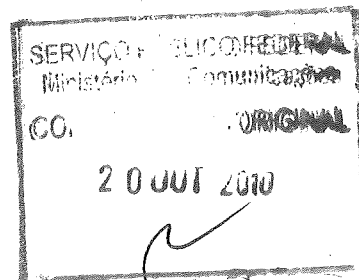 SERVIÇO PUBLICO FEDERAL
Ministério Comunicações
ORIGINAL
20 OUT 2010